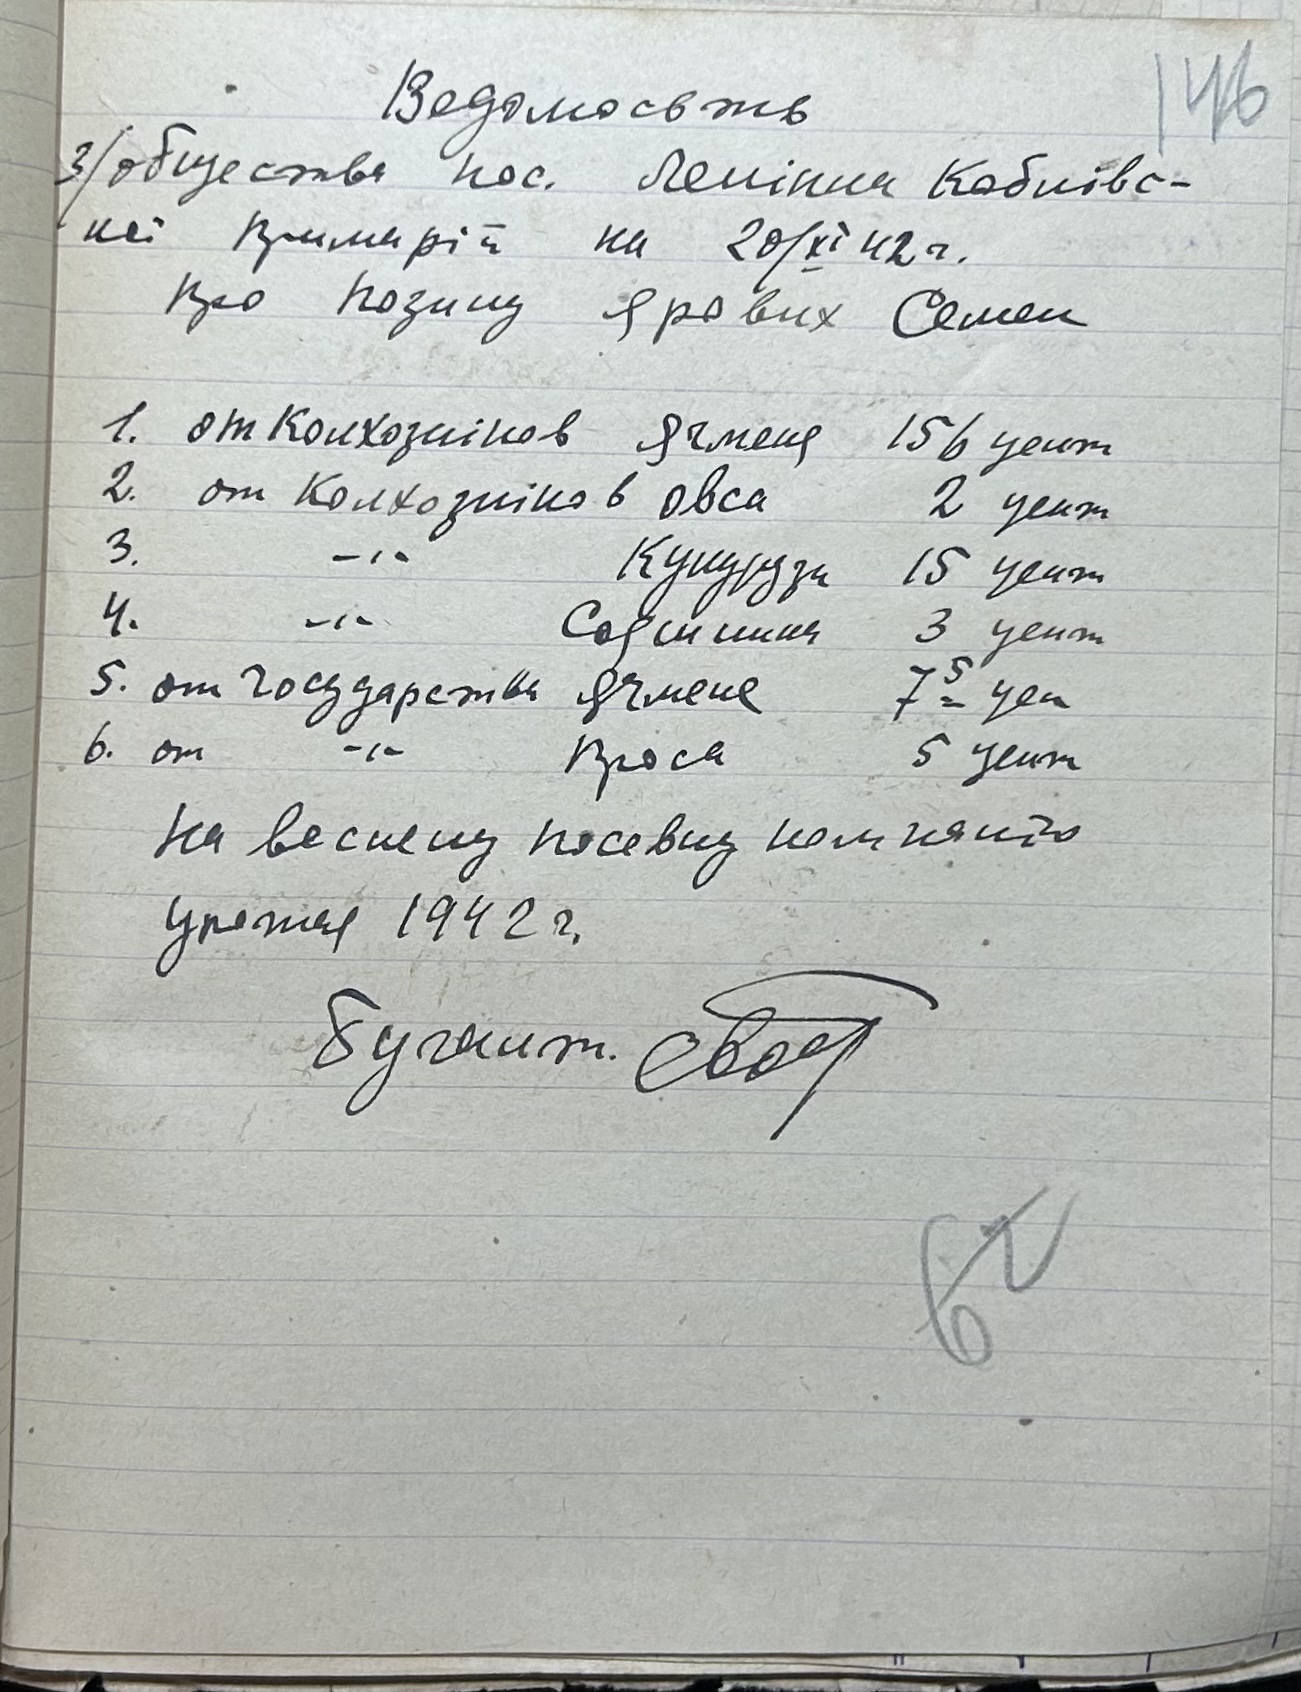 146
Ведомосьть
З/общества пос. Ленінка Коблівс-
кеі Примарій на 20/XI 42 г.
Про позику Ярових Семен
1. от Колхознінов Ячменя 156 цент
2. от Колхознінов овса 2 цент
3. -"- Кукурузи 15 цент
4. -"- Сояшника 3 цент
5. от Государства Ячмене 7 5 цен
6. от -"- Проса 5 цент
На веснену посевну компанію
урожая 1942 г.
Бугалт.
62